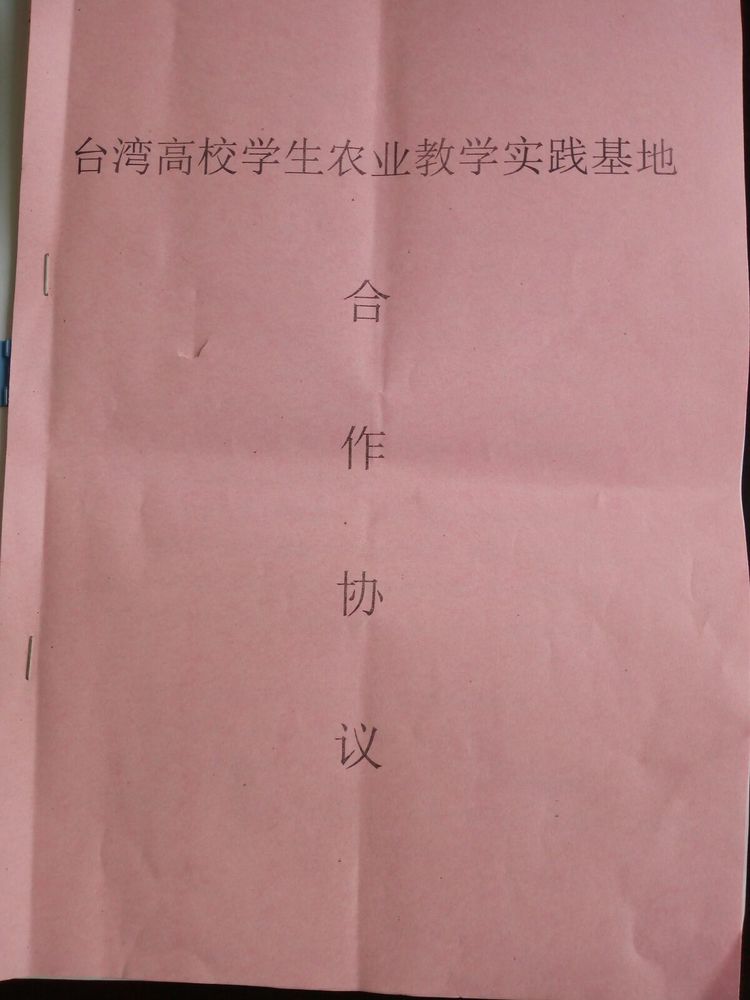 台湾高校学生农业教学实践基地
合
作
协
议